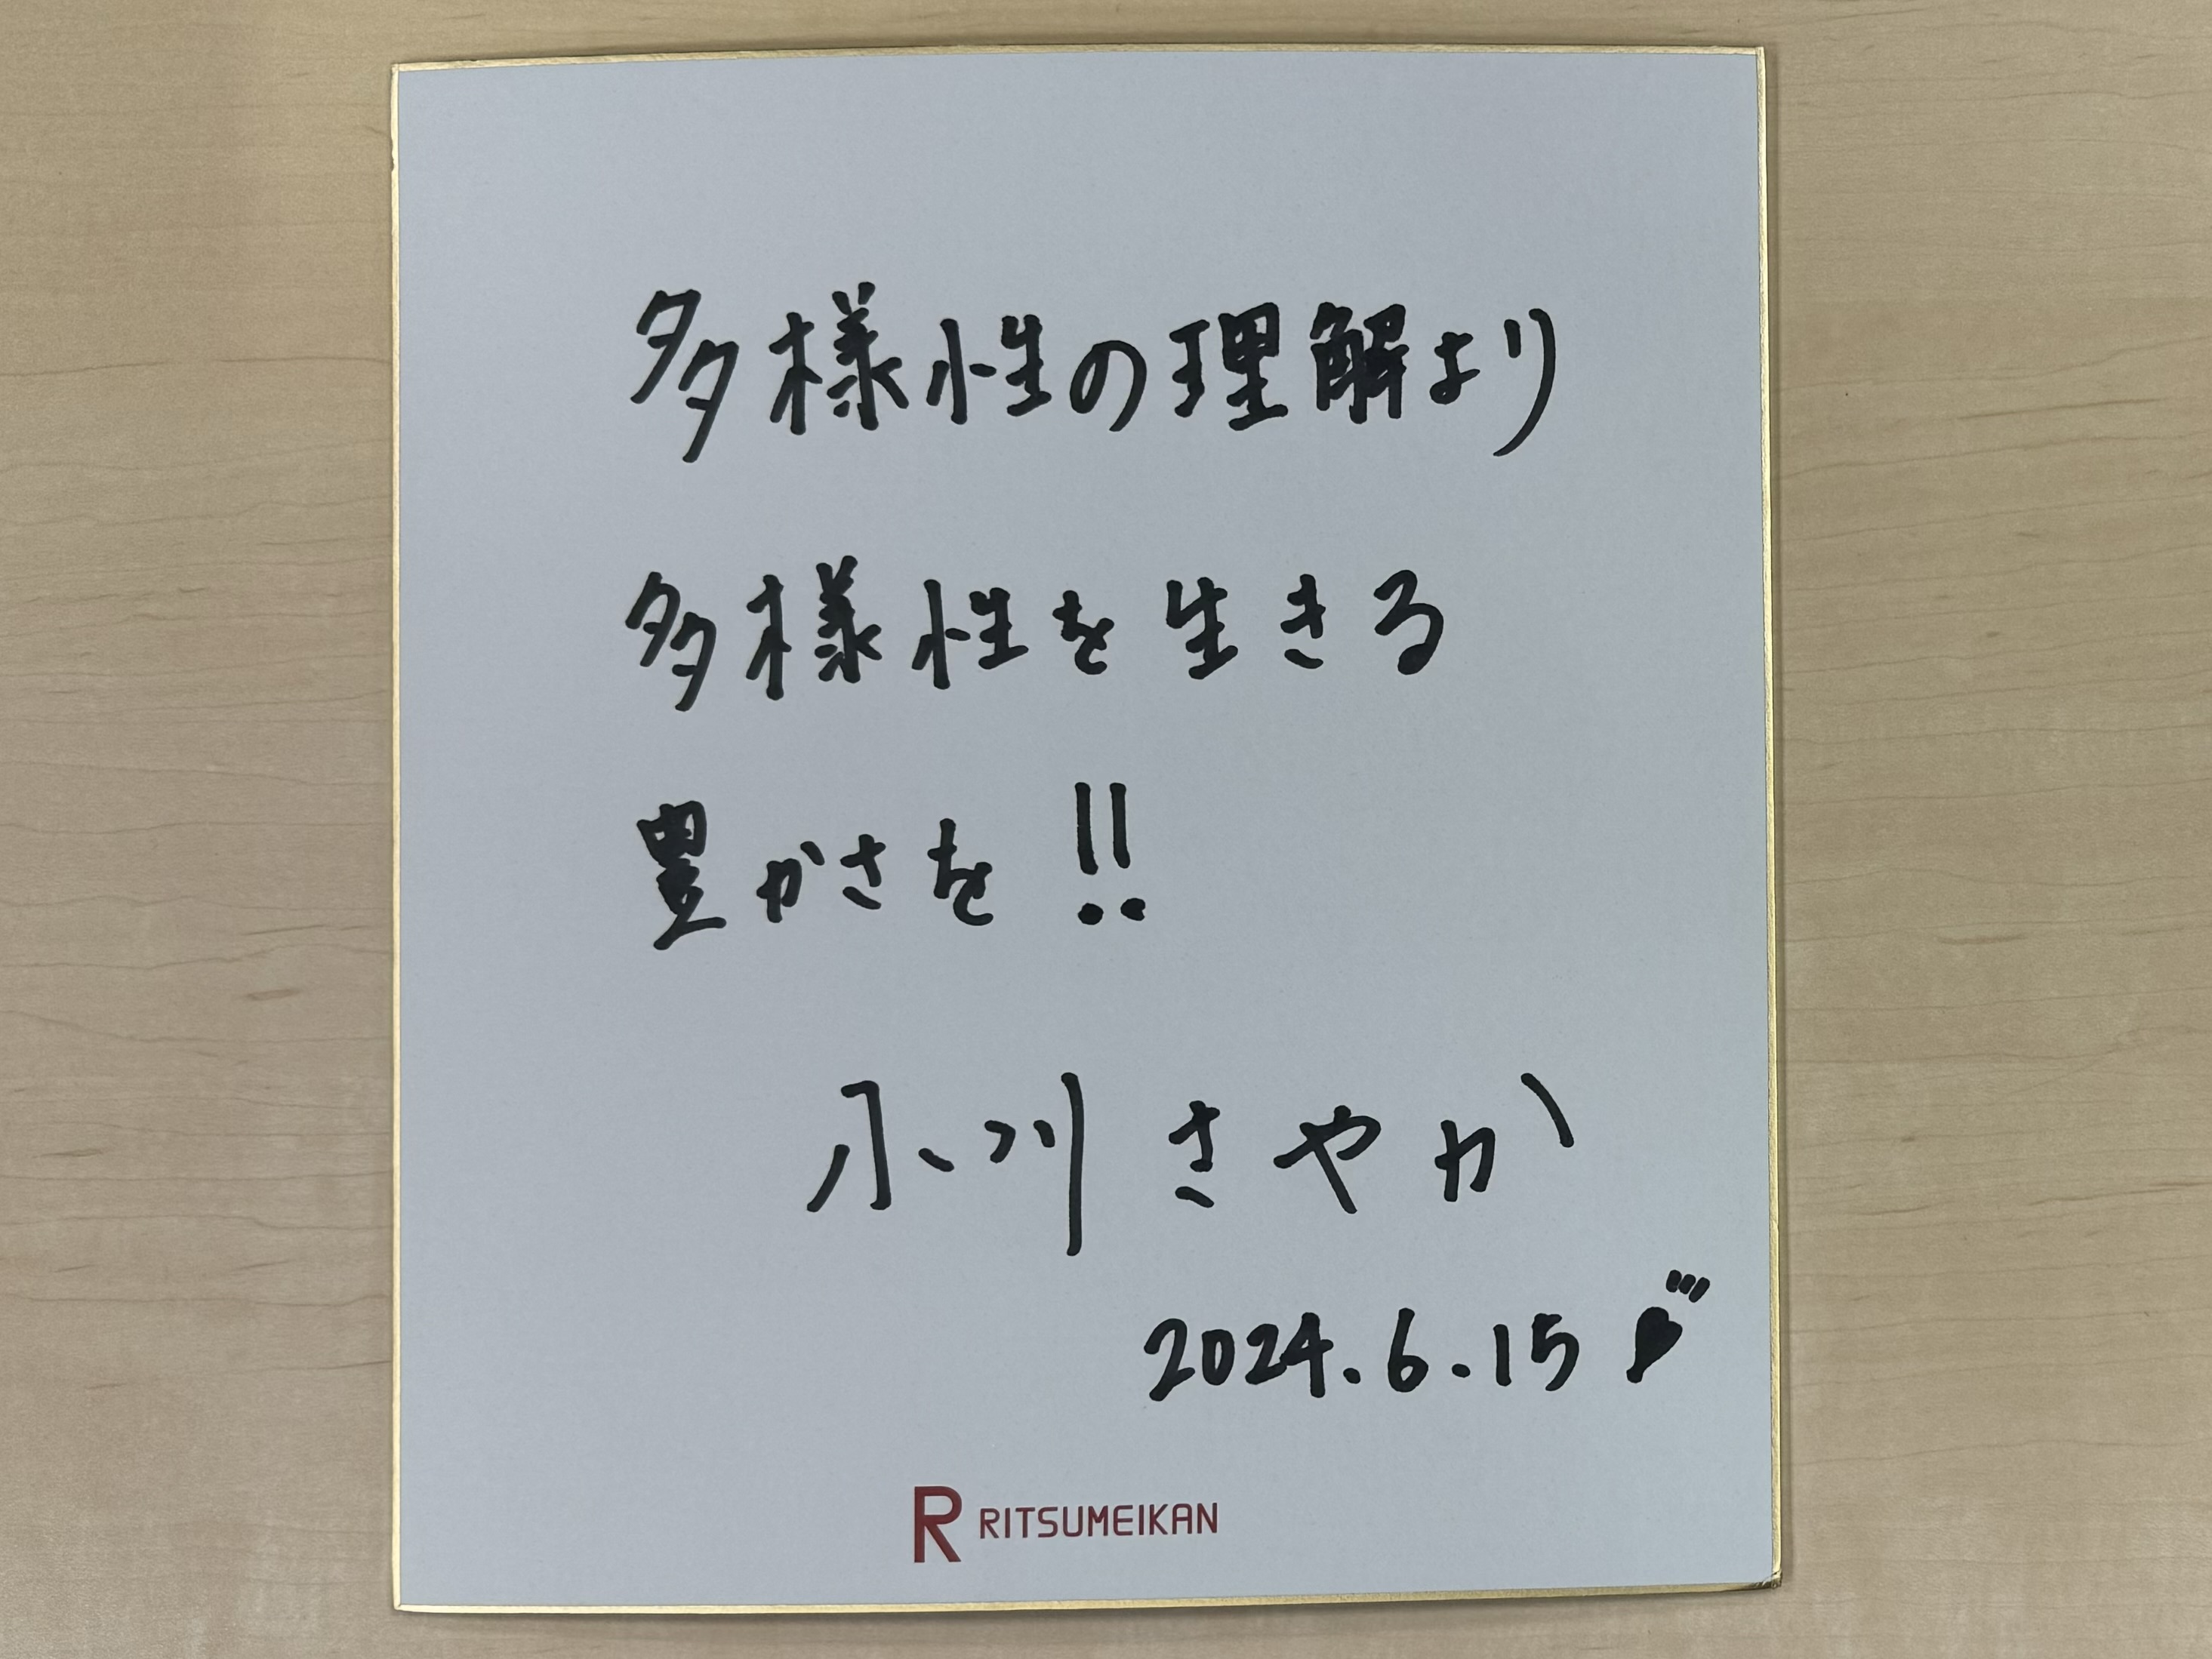 多様性の理解より
多様性を生きる
豊かさを!!
小川さやか
2024.6.15
R RITSUMEIKAN